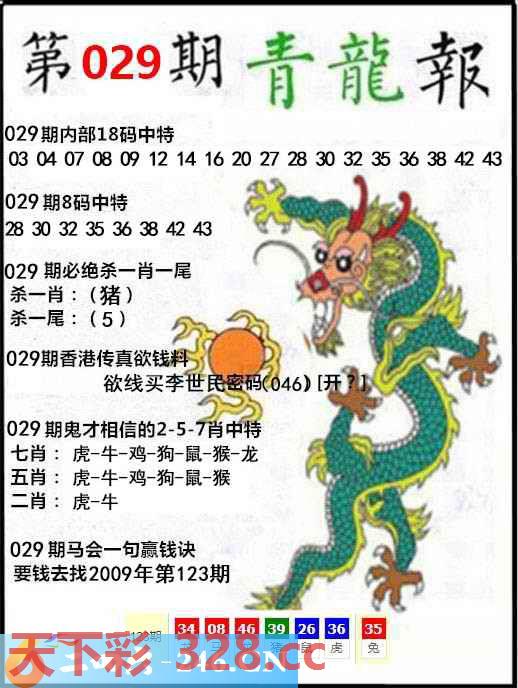 第029期青龍報
029期内部18码中特
03 04 07 08 09 12 14 16 20 27 28 30 32 35 36 38 42 43
029期8码中特
28 30 32 35 36 38 42 43
029 期必绝杀一肖一尾
杀一肖：(猪)
杀一尾：(5)
029期香港传真欲钱料
欲线买李世民密码(046) [开?]
029期鬼才相信的2-5-7肖中特
七肖：虎-牛-鸡-狗-鼠-猴-龙
五肖：虎-牛-鸡-狗-鼠-猴
二肖：虎-牛
029期马会一句赢钱诀
要钱去找2009年第123期
123期 34 08 46 39 26 36 35
猪 鼠 虎 兔
天下彩-328.cc